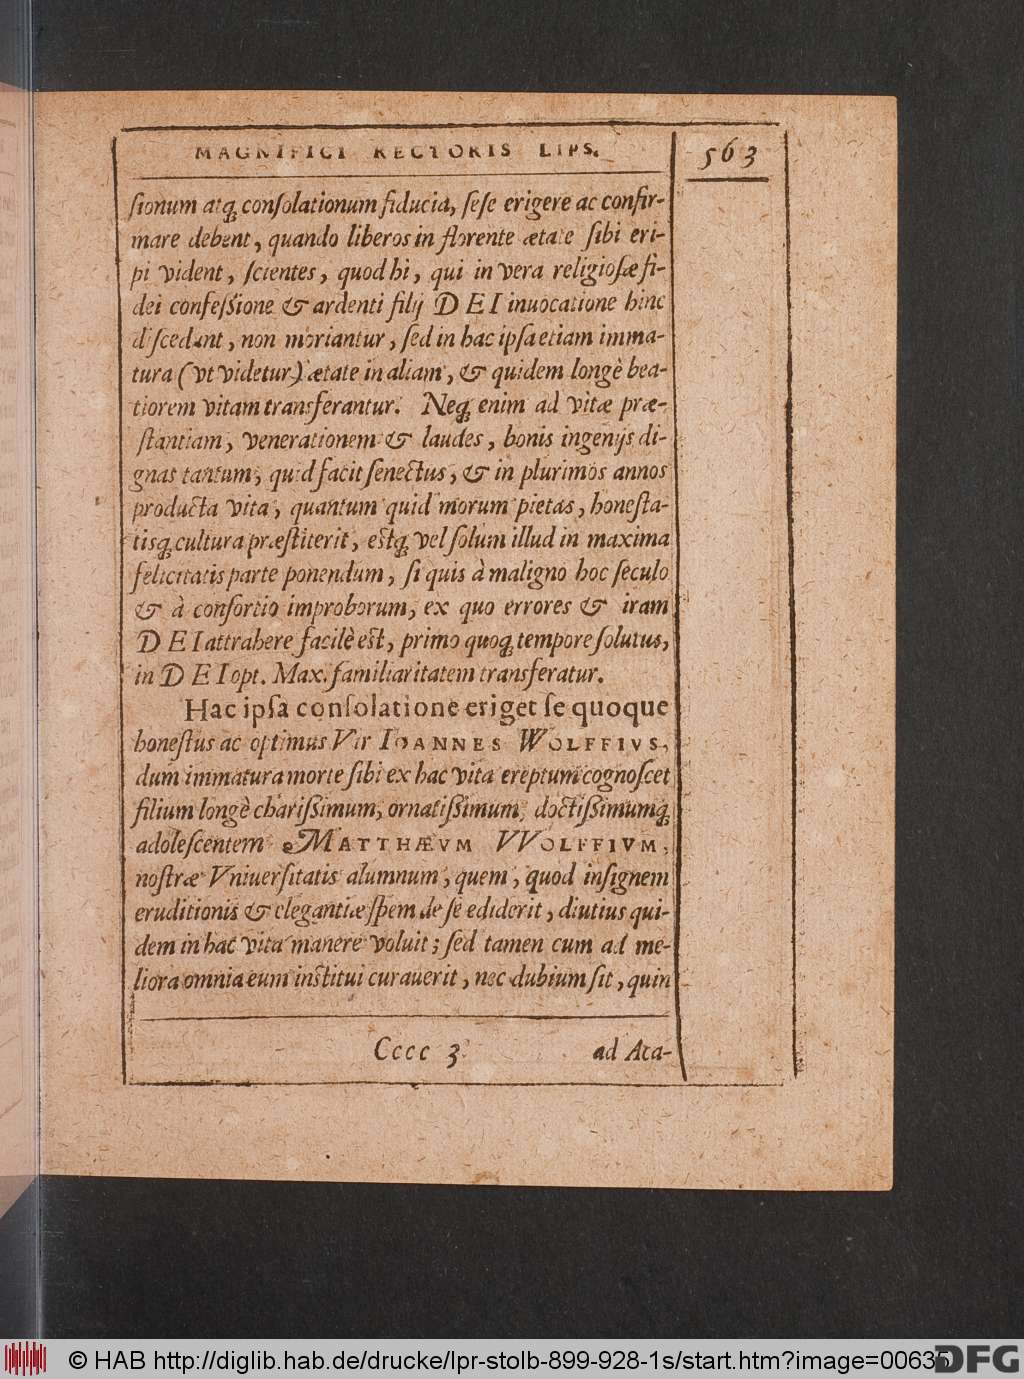 MAGNIFICI RECTORIS LIPS. 563
ſionum atq́; conſolationum fiducia, ſeſe erigere ac confir-
mare debent, quando liberos in florente ætate ſibi eri-
pi vident, ſcientes, quod hi, qui in vera religioſæ fi-
dei confeſsione & ardenti filij DEI inuocatione hinc
diſcedunt, non moriantur, ſed in hac ipſa etiam imma-
tura (vt videtur) ætate in aliam, & quidem longè bea-
tiorem vitam transferantur. Neq; enim ad vitæ præ-
ſtantiam, venerationem & laudes, bonis ingenijs di-
gnas tantum, quid facit ſenectus, & in plurimos annos
producta vita, quantum quid morum pietas, honeſta-
tisq; cultura præſtiterit, eſtq; vel ſolum illud in maxima
felicitatis parte ponendum, ſi quis à maligno hoc ſeculo
& à conſortio improborum, ex quo errores & iram
DEI attrahere facilè eſt, primo quoq; tempore ſolutus,
in DEI opt. Max. familiaritatem transferatur.
Hac ipſa conſolatione eriget ſe quoque
honeſtus ac optimus Vir IOANNES WOLFFIVS,
dum immatura morte ſibi ex hac vita ereptum cognoſcet
filium longè chariſsimum, ornatiſsimum, doctiſsimumq;
adoleſcentem MATTHÆVM VVOLFFIVM,
noſtræ Vniuerſitatis alumnum, quem, quod inſignem
eruditionis & elegantiæ ſpem de ſe ediderit, diutius qui-
dem in hac vita manere voluit; ſed tamen cum ad me-
liora omnia eum inſtitui curauerit, nec dubium ſit, quin
Cccc 3 ad Aca-
© HAB http://diglib.hab.de/drucke/lpr-stolb-899-928-1s/start.htm?image=00635
DFG